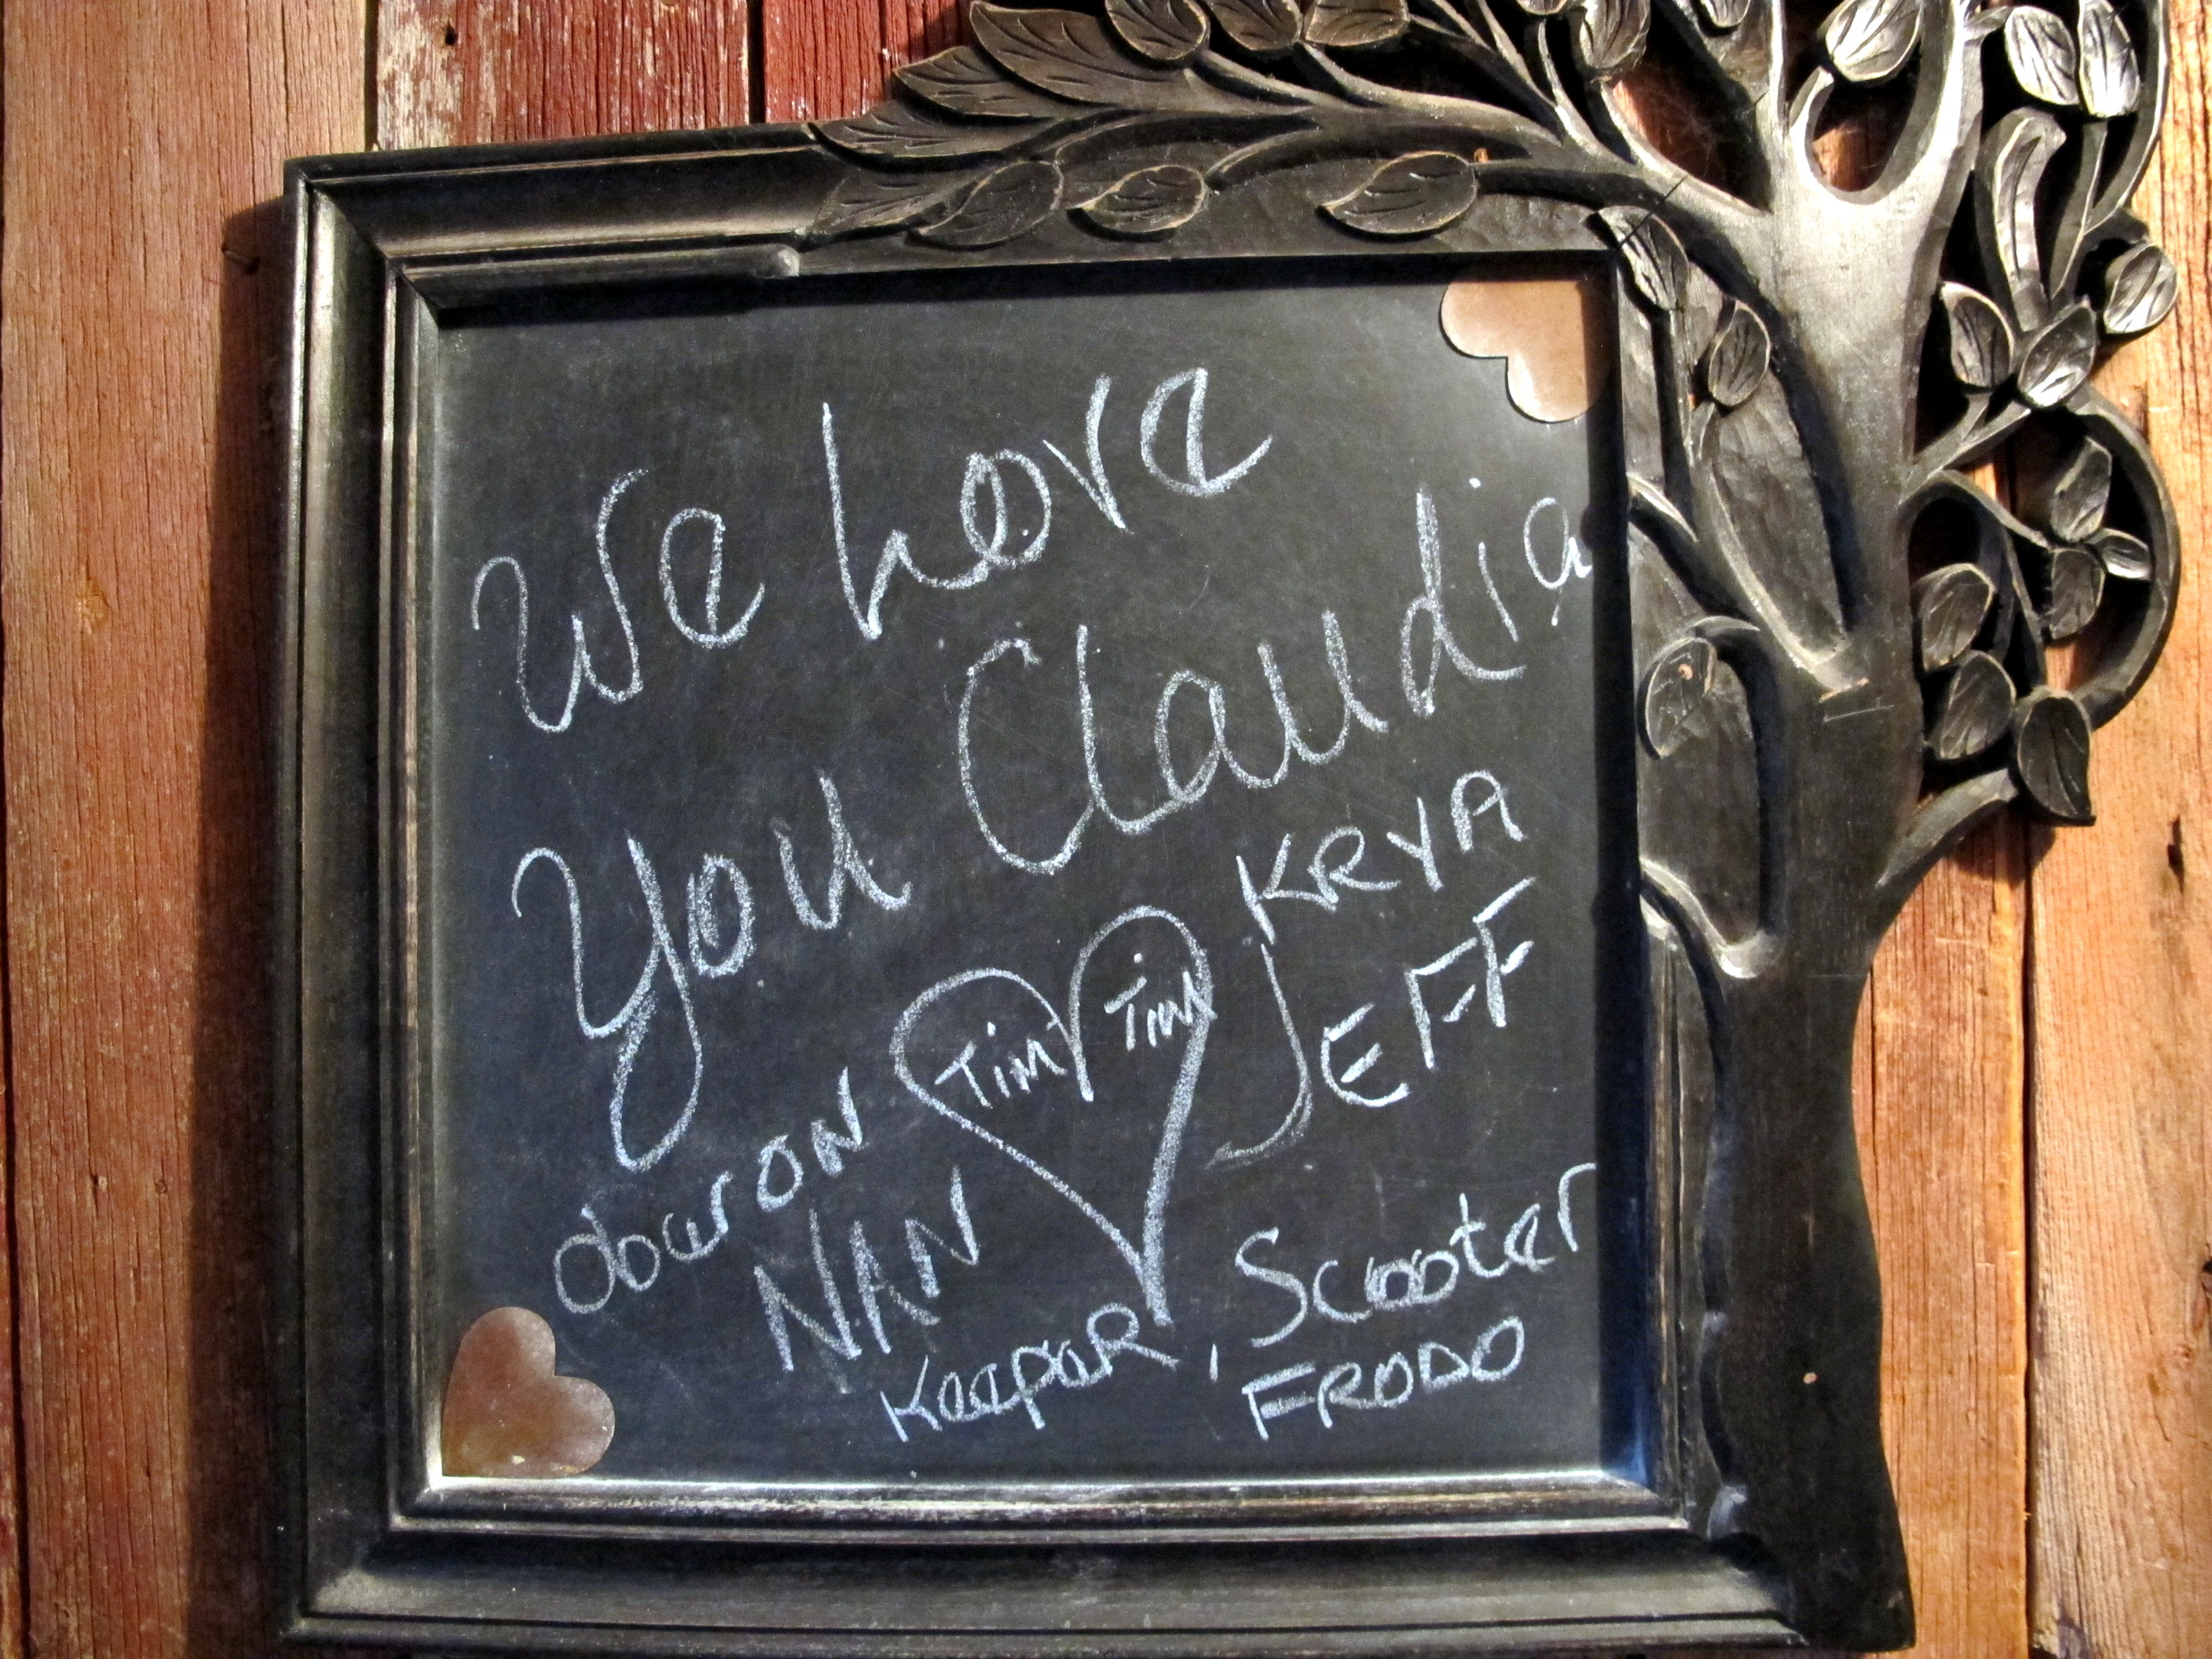 We Love
You Claudia
KRYA
Tim Tim
JEFF
NAN
Scooter
Keeper,
FRODO